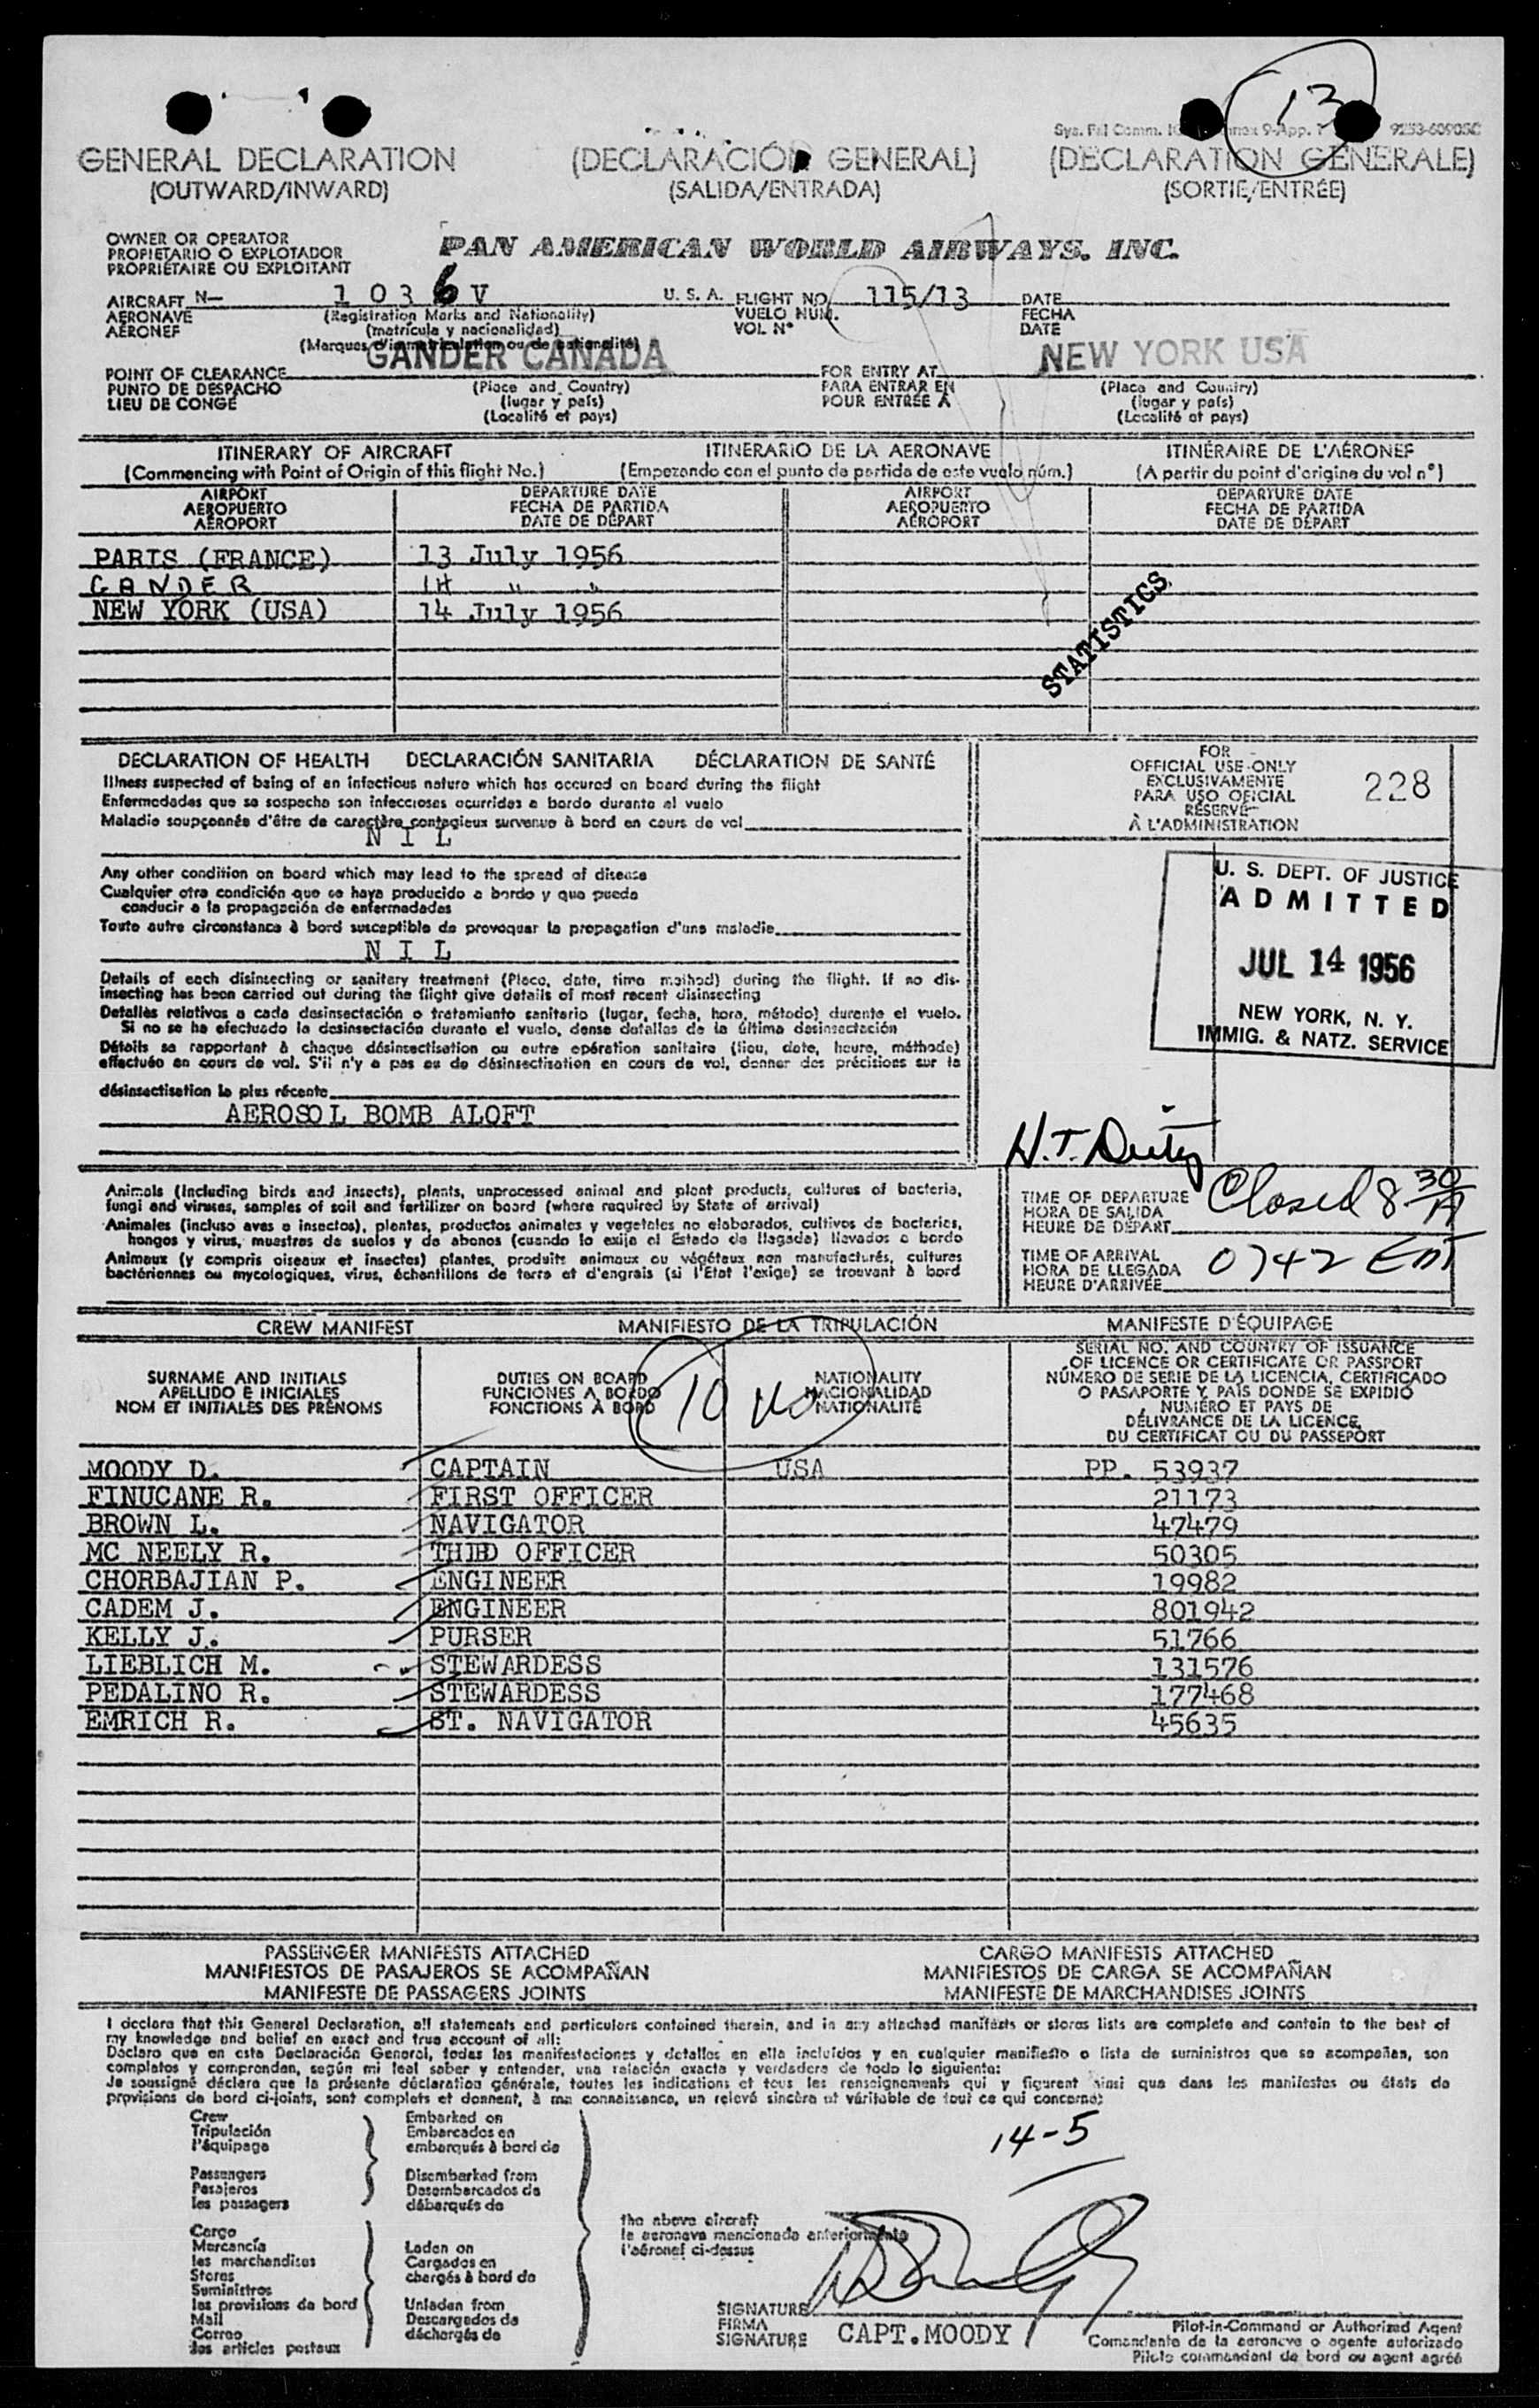 13
Sys. Fal Comm. 9-App. 9253-60905C
GENERAL DECLARATION (DECLARACIÓN GENERAL) (DECLARATION GÉNÉRALE)
(OUTWARD/INWARD) (SALIDA/ENTRADA) (SORTIE/ENTRÉE)
OWNER OR OPERATOR
PROPIETARIO O EXPLOTADOR
PROPRIÉTAIRE OU EXPLOITANT
PAN AMERICAN WORLD AIRWAYS, INC.
AIRCRAFT N— 1 0 3 6 V U. S. A. FLIGHT NO. 115/13 DATE
AERONAVE (Registration Marks and Nationality) VUELO NUM. FECHA
AÉRONEF (matrícula y nacionalidad) VOL N° DATE
(Marques d'immatriculation ou de nationalité)
GANDER CANADA NEW YORK USA
POINT OF CLEARANCE FOR ENTRY AT
PUNTO DE DESPACHO (Place and Country) PARA ENTRAR EN (Place and Country)
LIEU DE CONGÉ (lugar y país) POUR ENTRÉE À (lugar y país)
(Localité et pays) (Localité et pays)
ITINERARY OF AIRCRAFT ITINERARIO DE LA AERONAVE ITINÉRAIRE DE L'AÉRONEF
(Commencing with Point of Origin of this flight No.) (Empezando con el punto de partida de este vuelo núm.) (A partir du point d'origine du vol n°)
AIRPORT DEPARTURE DATE AIRPORT DEPARTURE DATE
AEROPUERTO FECHA DE PARTIDA AEROPUERTO FECHA DE PARTIDA
AÉROPORT DATE DE DÉPART AÉROPORT DATE DE DÉPART
PARIS (FRANCE) 13 July 1956
GANDER 14 " "
NEW YORK (USA) 14 July 1956
STATISTICS
DECLARATION OF HEALTH DECLARACIÓN SANITARIA DÉCLARATION DE SANTÉ
Illness suspected of being of an infectious nature which has occured on board during the flight
Enfermedades que se sospecha son infecciosas ocurridas a bordo durante el vuelo
Maladie soupçonnée d'être de caractère contagieux survenue à bord en cours de vol
N I L
Any other condition on board which may lead to the spread of disease
Cualquier otra condición que se haya producido a bordo y que pueda
conducir a la propagación de enfermedades
Toute autre circonstance à bord susceptible de provoquer la propagation d'une maladie
N I L
Details of each disinsecting or sanitary treatment (Place, date, time method) during the flight. If no dis-
insecting has been carried out during the flight give details of most recent disinsecting
Detalles relativos a cada desinsectación o tratamiento sanitario (lugar, fecha, hora, método) durante el vuelo.
Si no se ha efectuado la desinsectación durante el vuelo, dense detalles de la última desinsectación
Détails se rapportant à chaque désinsectisation ou autre opération sanitaire (lieu, date, heure, méthode)
effectuée en cours de vol. S'il n'y a pas eu de désinsectisation en cours de vol, donner des précisions sur la
désinsectisation la plus récente
AEROSOL BOMB ALOFT
FOR
OFFICIAL USE ONLY
EXCLUSIVAMENTE
PARA USO OFICIAL
RÉSERVÉ
À L'ADMINISTRATION
228
U. S. DEPT. OF JUSTICE
ADMITTED
JUL 14 1956
NEW YORK, N. Y.
IMMIG. & NATZ. SERVICE
Animals (including birds and insects), plants, unprocessed animal and plant products, cultures of bacteria,
fungi and viruses, samples of soil and fertilizer on board (where required by State of arrival)
Animales (incluso aves e insectos), plantas, productos animales y vegetales no elaborados, cultivos de bacterias,
hongos y virus, muestras de suelos y de abonos (cuando lo exija el Estado de llegada) llevados a bordo
Animaux (y compris oiseaux et insectes) plantes, produits animaux ou végétaux non manufacturés, cultures
bactériennes ou mycologiques, virus, échantillons de terre et d'engrais (si l'État l'exige) se trouvant à bord
TIME OF DEPARTURE
HORA DE SALIDA
HEURE DE DÉPART
Closed 8 30 A
TIME OF ARRIVAL
HORA DE LLEGADA
HEURE D'ARRIVÉE
0742
CREW MANIFEST MANIFIESTO DE LA TRIPULACIÓN MANIFESTE D'ÉQUIPAGE
SURNAME AND INITIALS
APELLIDO E INICIALES
NOM ET INITIALES DES PRÉNOMS
DUTIES ON BOARD
FUNCIONES A BORDO
FONCTIONS À BORD
10
NATIONALITY
NACIONALIDAD
NATIONALITÉ
SERIAL NO. AND COUNTRY OF ISSUANCE
OF LICENCE OR CERTIFICATE OR PASSPORT
NÚMERO DE SERIE DE LA LICENCIA, CERTIFICADO
O PASAPORTE Y PAÍS DONDE SE EXPIDIÓ
NUMÉRO ET PAYS DE
DÉLIVRANCE DE LA LICENCE,
DU CERTIFICAT OU DU PASSEPORT
MOODY D. CAPTAIN USA PP. 53937
FINUCANE R. FIRST OFFICER 21173
BROWN L. NAVIGATOR 47479
MC NEELY R. THIRD OFFICER 50305
CHORBAJIAN P. ENGINEER 19982
CADEM J. ENGINEER 801942
KELLY J. PURSER 51766
LIEBLICH M. STEWARDESS 131576
PEDALINO R. STEWARDESS 177468
EMRICH R. ST. NAVIGATOR 45635
PASSENGER MANIFESTS ATTACHED CARGO MANIFESTS ATTACHED
MANIFIESTOS DE PASAJEROS SE ACOMPAÑAN MANIFIESTOS DE CARGA SE ACOMPAÑAN
MANIFESTE DE PASSAGERS JOINTS MANIFESTE DE MARCHANDISES JOINTS
I declare that this General Declaration, all statements and particulars contained therein, and in any attached manifests or stores lists are complete and contain to the best of
my knowledge and belief an exact and true account of all:
Declaro que en esta Declaración General, todas las manifestaciones y detalles en ella incluídos y en cualquier manifiesto o lista de suministros que se acompañan, son
completos y comprenden, según mi leal saber y entender, una relación exacta y verdadera de todo lo siguiente:
Je soussigné déclare que la présente déclaration générale, toutes les indications et tous les renseignements qui y figurent ainsi que dans les manifestes ou états de
provisions de bord ci-joints, sont complets et donnent, à ma connaissance, un relevé sincère et véritable de tout ce qui concerne:
Crew
Tripulación
l'équipage
Passengers
Pasajeros
les passagers
Embarked on
Embarcados en
embarqués à bord de
Disembarked from
Desembarcados de
débarqués de
Cargo
Mercancía
les marchandises
Stores
Suministros
les provisions de bord
Mail
Correo
les articles postaux
Laden on
Cargados en
chargés à bord de
Unladen from
Descargados de
déchargés de
the above aircraft
la aeronave mencionada anteriormente
l'aéronef ci-dessus
14-5
SIGNATURE
FIRMA
SIGNATURE
CAPT.MOODY
Pilot-in-Command or Authorized Agent
Comandante de la aeronave o agente autorizado
Pilote commandant de bord ou agent agréé